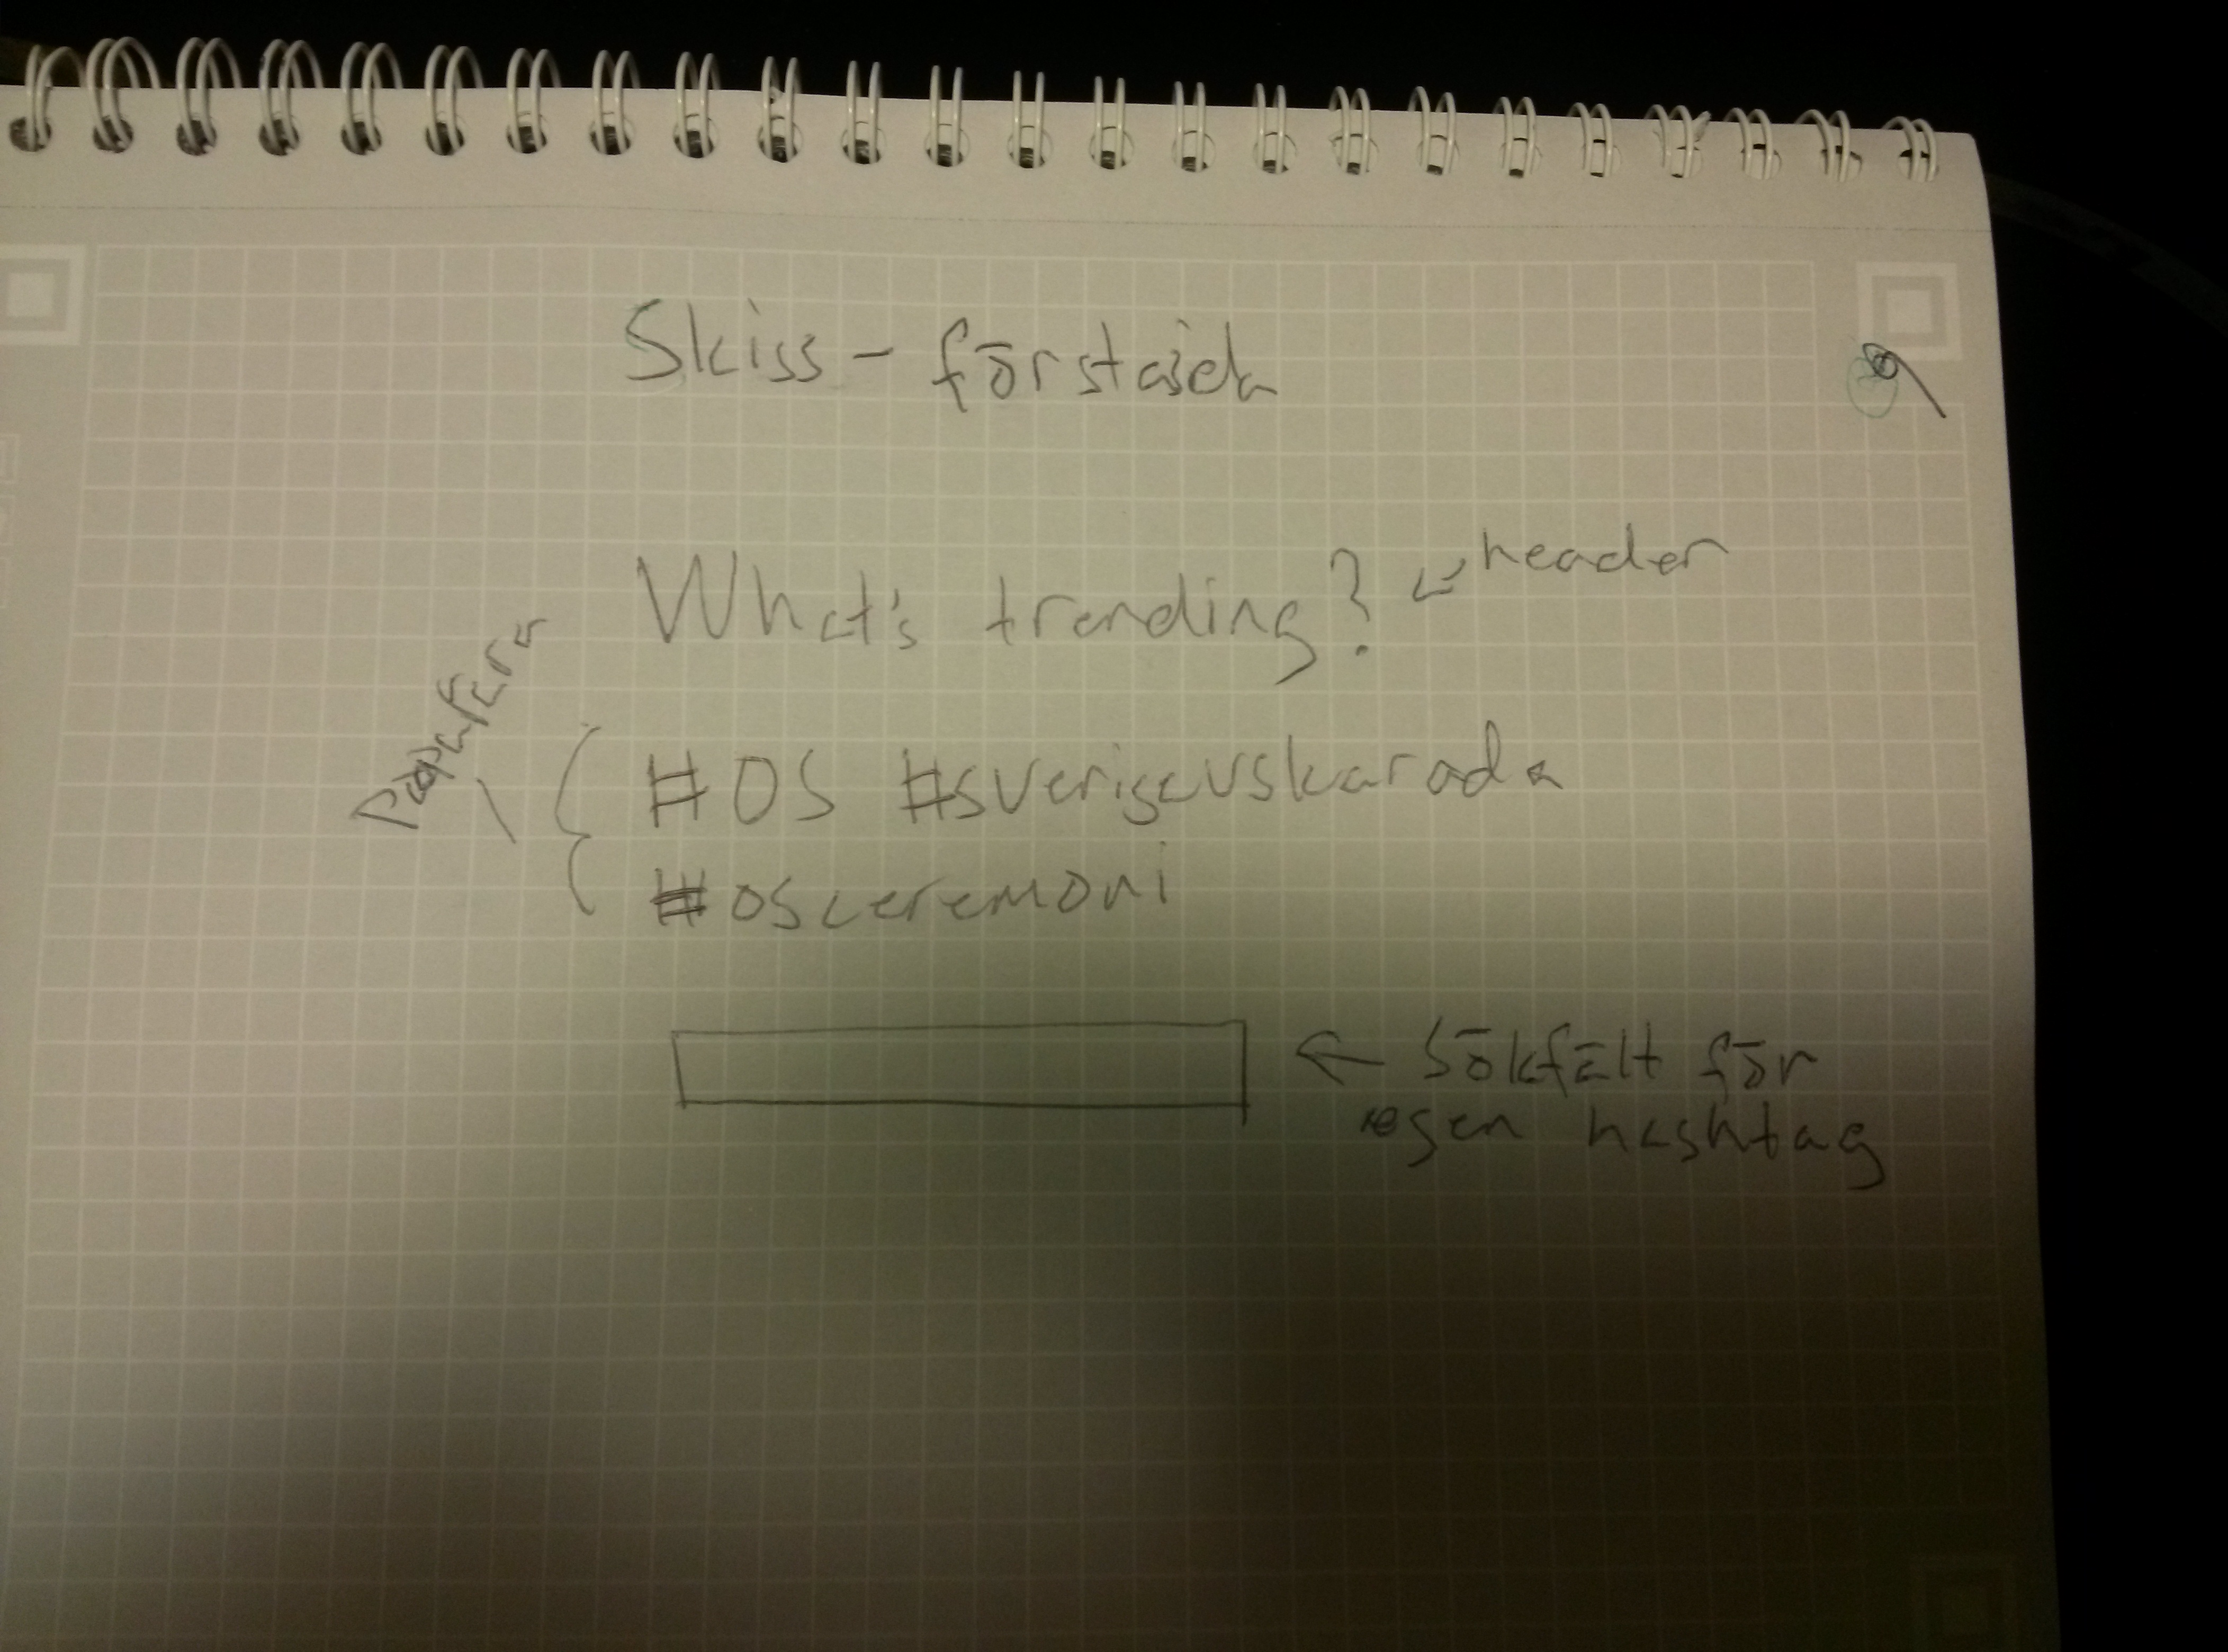 Skiss - förstasida
What's trending?
header
Populära
#OS #sverigevskanada
#osceremoni
Sökfält för
egen hashtag